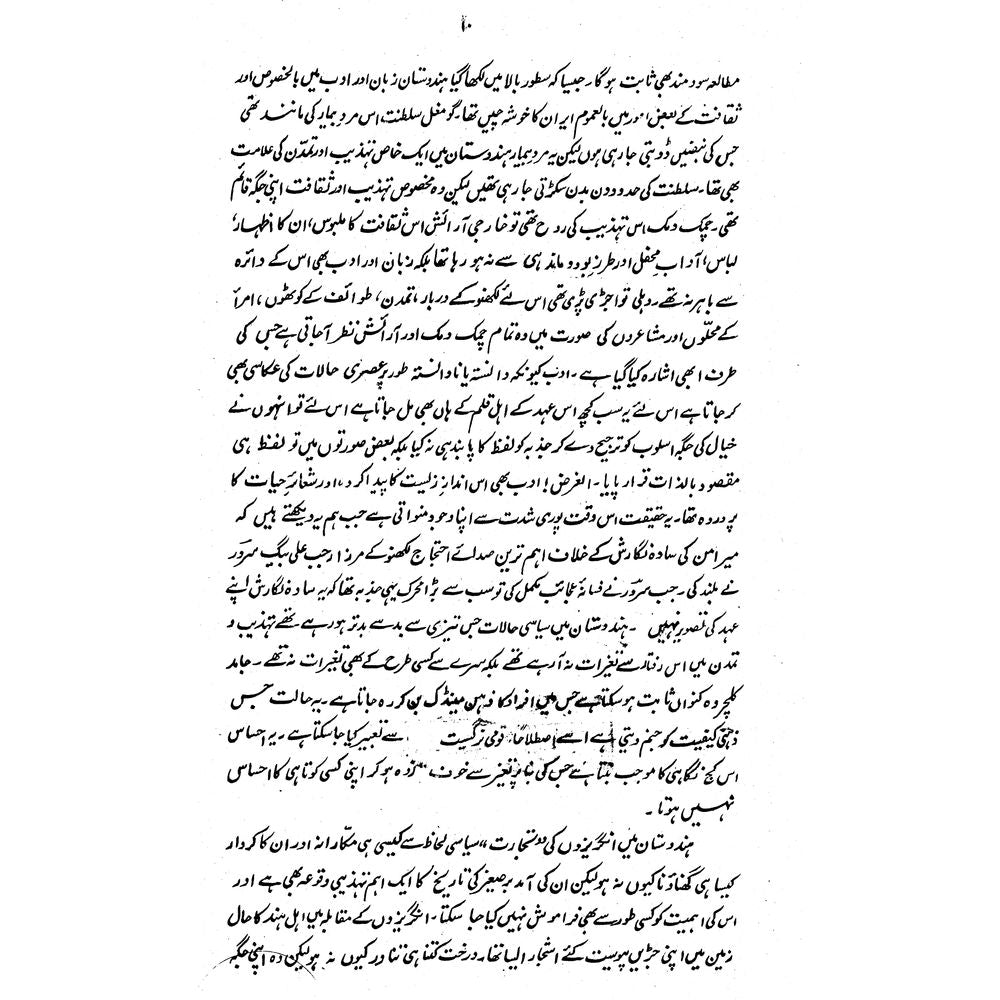 ۱۰
مطالعہ سود مند بھی ثابت ہوگا۔ جیسا کہ سطور بالا میں لکھا گیا ہندوستان زبان اور ادب میں بالخصوص اور
ثقافت کے بعض امور میں بالعموم ایران کا خوشہ چیں تھا۔ گو مغل سلطنت، اس مرد بیمار کی مانند تھی
جس کی نبضیں ڈوبتی جارہی ہوں لیکن یہ مرد بیمار ہندوستان میں ایک خاص تہذیب اور تمدّن کی علامت
بھی تھا۔ سلطنت کی حدود دن بدن سکڑتی جارہی تھیں لیکن وہ مخصوص تہذیب اور ثقافت اپنی جگہ قائم
تھی۔ چمک دمک اس تہذیب کی روح تھی تو خارجی آرائش اس ثقافت کا ملبوس، ان کا اظہار،
لباس، آداب محفل اور طرز بود و ماند ہی سے نہ ہو رہا تھا بلکہ زبان اور ادب بھی اس کے دائرہ
سے باہر نہ تھے۔ دہلی تو اجڑی پڑی تھی اس لئے لکھنو کے دربار، تمدن، طوائف کے کوٹھوں، امرأ
کے محلّوں اور مشاعروں کی صورت میں وہ تمام چمک دمک اور آرائش نظر آجاتی ہے جس کی
طرف ابھی اشارہ کیا گیا ہے۔ ادب کیونکہ دانستہ یا نادانستہ طور پر عصری حالات کی عکاسی بھی
کر جاتا ہے اس لئے یہ سب کچھ اس عہد کے اہل قلم کے ہاں بھی مل جاتا ہے اس لئے تو انہوں نے
خیال کی جگہ اسلوب کو ترجیح دے کر جذبہ کو لفظ کا پابند ہی نہ کیا بلکہ بعض صورتوں میں تو لفظ ہی
مقصود بالذات قرار پایا۔ الغرض! ادب بھی اس انداز زیست کا پیدا کردہ، اور شعائرِ حیات کا
پروردہ تھا۔ یہ حقیقت اس وقت پوری شدت سے اپنا وجود منواتی ہے جب ہم یہ دیکھتے ہیں کہ
میر امن کی سادہ نگارش کے خلاف اہم ترین صدائے احتجاج لکھنو کے مرزا رجب علی بیگ سرور
نے بلند کی۔ جب سرور نے فسانہ عجائب مکمل کی تو سب سے بڑا محرک یہی جذبہ تھا کہ یہ سادہ نگارش اپنے
عہد کی تصویر نہیں۔ ہندوستان میں سیاسی حالات جس تیزی سے بد سے بدتر ہو رہے تھے تہذیب و
تمدن میں اس رفتار سے تغیرات نہ آرہے تھے بلکہ سرے سے کسی طرح کے بھی تغیرات نہ تھے۔ جامد
کلچر وہ کنواں ثابت ہو سکتا ہے جس میں افراد کا ذہن مینڈک بن کر رہ جاتا ہے۔ یہ حالت جس
ذہنی کیفیت کو جنم دیتی ہے اسے اصطلاحاً، قومی نرگسیت سے تعبیر کیا جا سکتا ہے۔ یہ احساس
اس کج نگاہی کا موجب بنتا ہے جس کی بنا پر تغیر سے خوف زدہ ہو کر اپنی کسی کوتاہی کا احساس
نہیں ہوتا۔
ہندوستان میں انگریزوں کی "تجارت" سیاسی لحاظ سے کیسی ہی مکّارانہ اور ان کا کردار
کیسا ہی گھناؤنا کیوں نہ ہو لیکن ان کی آمد بر صغیر کی تاریخ کا ایک اہم تہذیبی وقوعہ بھی ہے اور
اس کی اہمیت کو کسی طور سے بھی فراموش نہیں کیا جا سکتا۔ انگریزوں کے مقابلہ میں اہل ہند کا حال
زمین میں اپنی جڑیں پیوست کئے اشجار ایسا تھا۔ درخت کتنا ہی تناور کیوں نہ ہو لیکن وہ اپنی جگہ